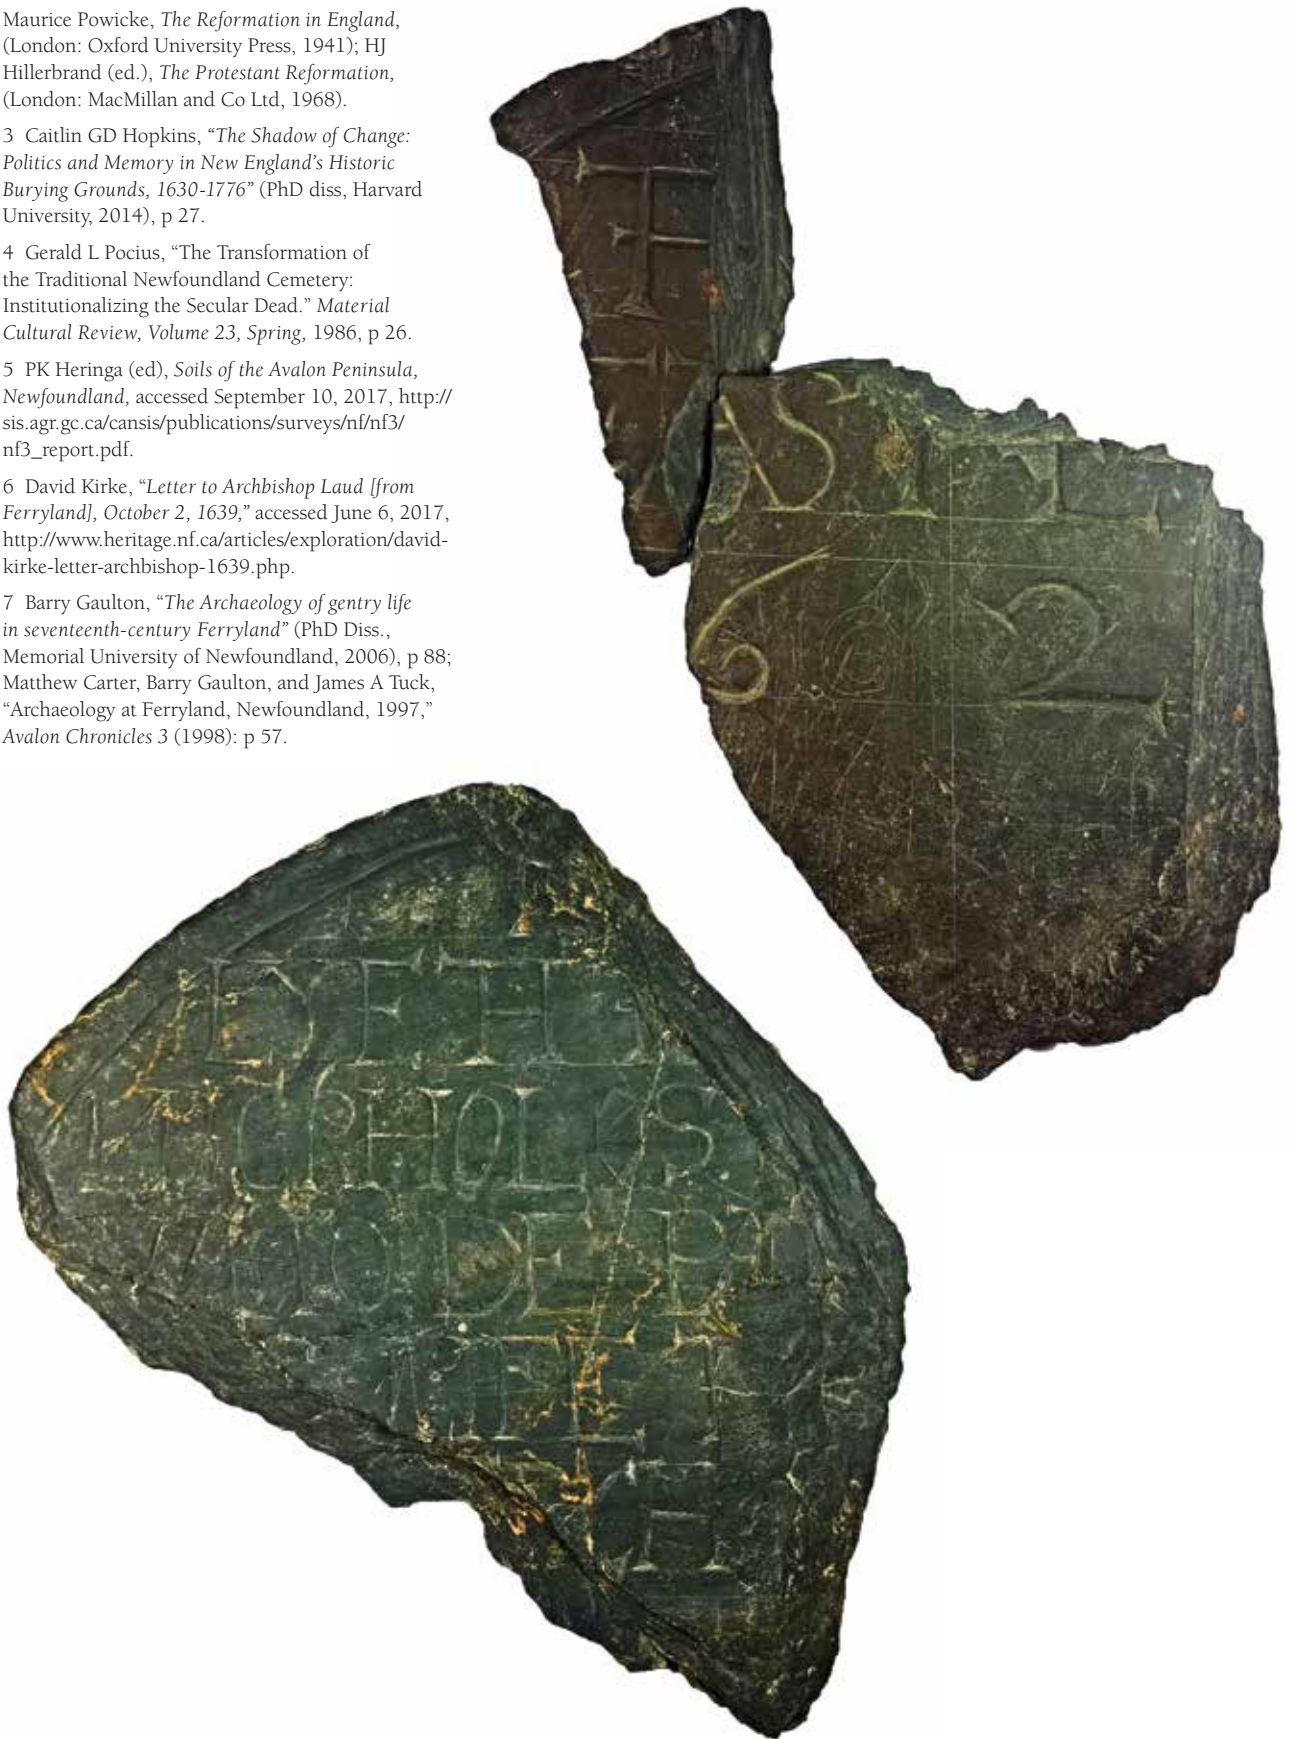 Maurice Powicke, The Reformation in England,
(London: Oxford University Press, 1941); HJ
Hillerbrand (ed.), The Protestant Reformation,
(London: MacMillan and Co Ltd, 1968).
3 Caitlin GD Hopkins, “The Shadow of Change:
Politics and Memory in New England’s Historic
Burying Grounds, 1630-1776” (PhD diss, Harvard
University, 2014), p 27.
4 Gerald L Pocius, “The Transformation of
the Traditional Newfoundland Cemetery:
Institutionalizing the Secular Dead.” Material
Cultural Review, Volume 23, Spring, 1986, p 26.
5 PK Heringa (ed), Soils of the Avalon Peninsula,
Newfoundland, accessed September 10, 2017, http://
sis.agr.gc.ca/cansis/publications/surveys/nf/nf3/
nf3_report.pdf.
6 David Kirke, “Letter to Archbishop Laud [from
Ferryland], October 2, 1639,” accessed June 6, 2017,
http://www.heritage.nf.ca/articles/exploration/david-
kirke-letter-archbishop-1639.php.
7 Barry Gaulton, “The Archaeology of gentry life
in seventeenth-century Ferryland” (PhD Diss.,
Memorial University of Newfoundland, 2006), p 88;
Matthew Carter, Barry Gaulton, and James A Tuck,
“Archaeology at Ferryland, Newfoundland, 1997,”
Avalon Chronicles 3 (1998): p 57.
6 2